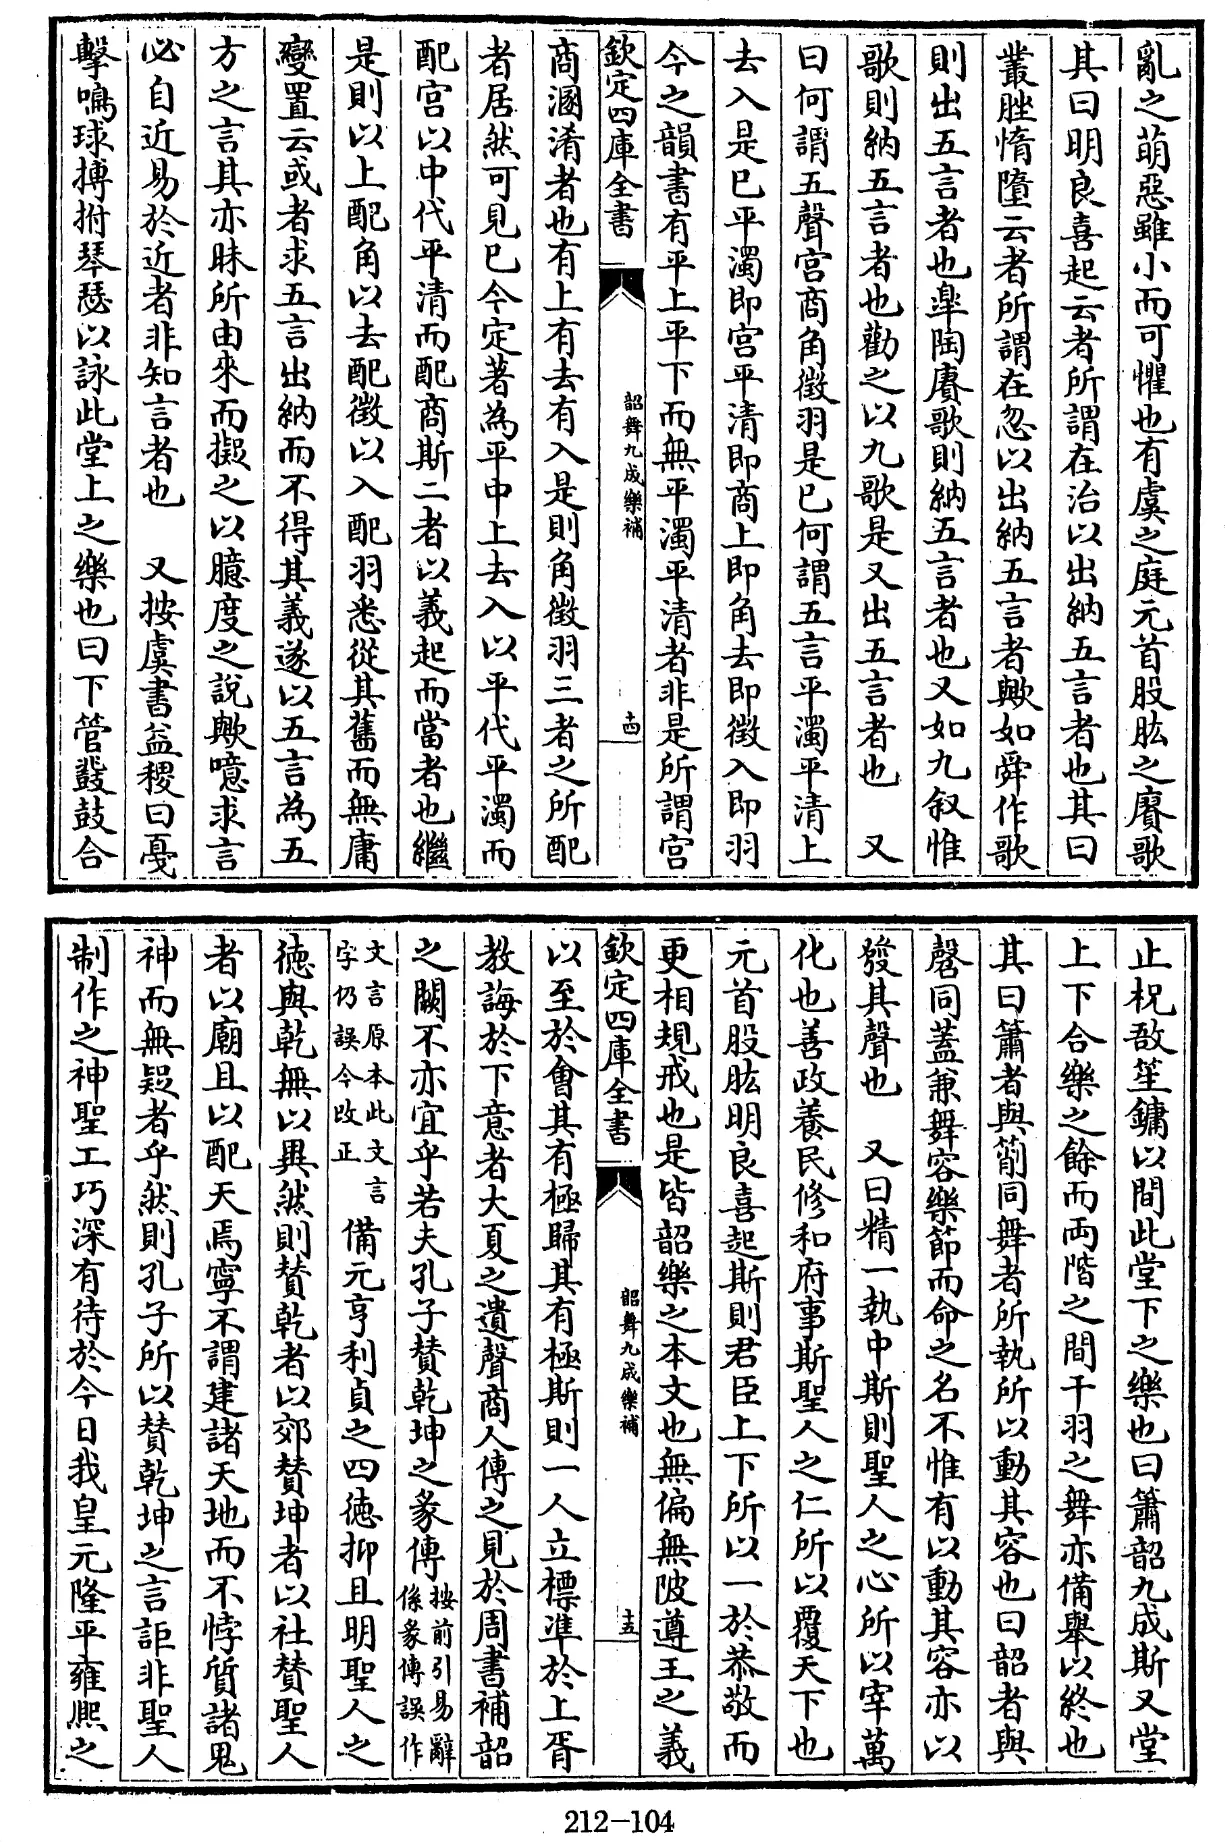 亂之萌惡雖小而可懼也有虞之庭元首股肱之賡歌
其曰明良喜起云者所謂在治以出納五言者也其曰
叢脞惰墮云者所謂在忽以出納五言者歟如舜作歌
則出五言者也臯陶賡歌則納五言者也又如九叙惟
歌則納五言者也勸之以九歌是又出五言者也　又
曰何謂五聲宫商角徴羽是已何謂五言平濁平清上
去入是已平濁即宫平清即商上即角去即徴入即羽
今之韻書有平上平下而無平濁平清者非是所謂宫
欽定四庫全書
韶舞九成樂補
十四
商溷淆者也有上有去有入是則角徴羽三者之所配
者居然可見已今定著為平中上去入以平代平濁而
配宫以中代平清而配商斯二者以義起而當者也繼
是則以上配角以去配徴以入配羽悉從其舊而無庸
變置云或者求五言出納而不得其義遂以五言為五
方之言其亦昧所由來而擬之以臆度之說歟噫求言
必自近易於近者非知言者也　又按虞書益稷曰戛
擊鳴球搏拊琴瑟以詠此堂上之樂也曰下管鼗鼓合
止柷敔笙鏞以間此堂下之樂也曰簫韶九成斯又堂
上下合樂之餘而兩階之間干羽之舞亦備舉以終也
其曰簫者與箾同舞者所執所以動其容也曰韶者與
磬同蓋兼舞容樂節而命之名不惟有以動其容亦以
發其聲也　又曰精一執中斯則聖人之心所以宰萬
化也善政養民修和府事斯聖人之仁所以覆天下也
元首股肱明良喜起斯則君臣上下所以一於恭敬而
更相規戒也是皆韶樂之本文也無偏無陂遵王之義
欽定四庫全書
韶舞九成樂補
十五
以至於會其有極歸其有極斯則一人立標準於上胥
教誨於下意者大夏之遺聲商人傳之見於周書補韶
之闕不亦宜乎若夫孔子贊乾坤之彖傳按前引易辭係彖傳誤作
文言原本此文言字仍誤今改正備元亨利貞之四德抑且明聖人之
德與乾無以異然則贊乾者以郊贊坤者以社贊聖人
者以廟且以配天焉寧不謂建諸天地而不悖質諸鬼
神而無疑者乎然則孔子所以贊乾坤之言詎非聖人
制作之神聖工巧深有待於今日我皇元隆平雍熈之
212-104